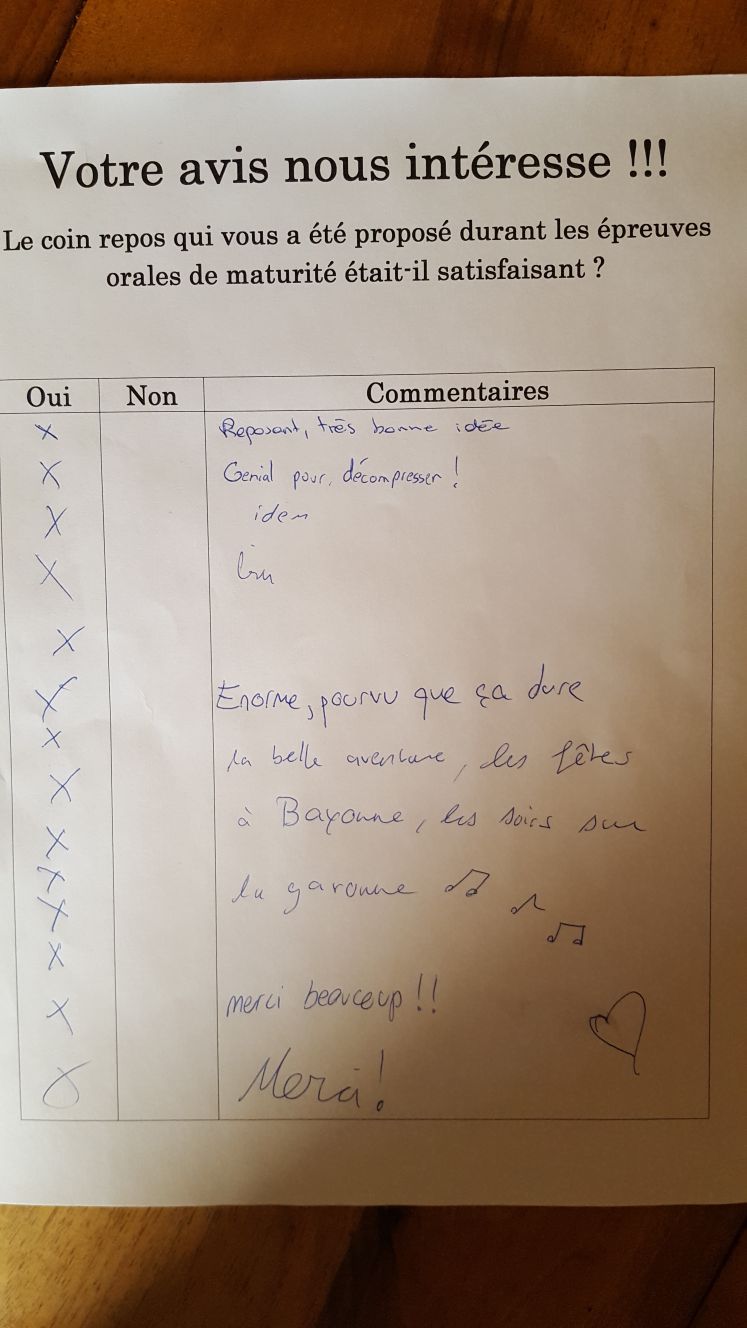 Votre avis nous intéresse !!!
Le coin repos qui vous a été proposé durant les épreuves
orales de maturité était-il satisfaisant ?
Oui Non Commentaires
X Reposant, très bonne idée
X Genial pour, décompresser !
X idem
X
X
X Enorme, pourvu que ça dure
X
X la belle aventure, les fêtes
X à Bayonne, les soirs sur
X
X la garonne
X
X merci beaucoup !!
X Merci !